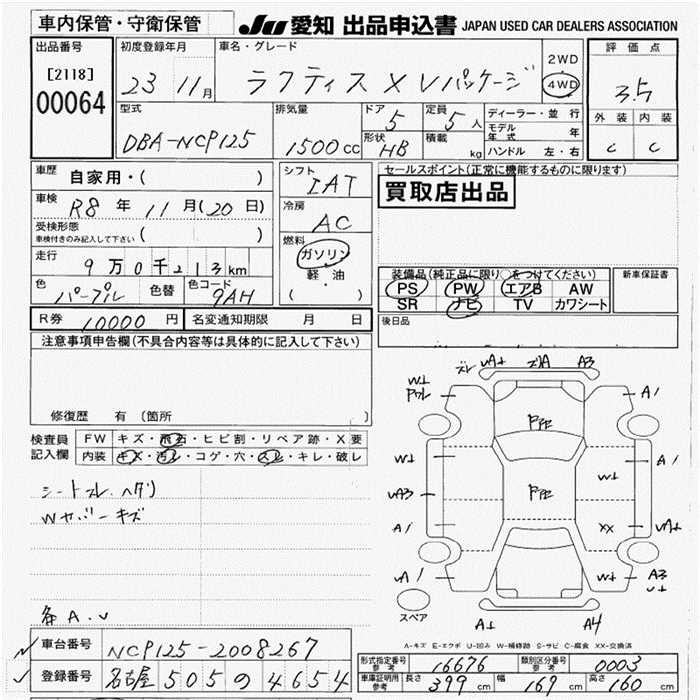 車内保管・守衛保管
JU 愛知 出品申込書 JAPAN USED CAR DEALERS ASSOCIATION
出品番号
[2118]
00064
初度登録年月
23 11月
車名・グレード
ラクティス X Vパッケージ
2WD
4WD
評価点
3.5
外装 内装
C C
型式
DBA-NCP125
排気量
1500cc
ドア
5
形状
HB
定員
5人
積載
kg
ディーラー・並行
モデル年式 年
ハンドル 左・右
車歴
自家用・( )
車検
R8年 11月(20日)
受検形態
車検付きのみ記入して下さい ( )
走行
9万0千213km
色
パープル
色替
色コード
9AH
シフト
IAT
冷房
AC
燃料
ガソリン
軽・油
( )
セールスポイント(正常に機能するものに限ります)
買取店出品
装備品(純正品に限り○をつけてください)
PS PW エアB AW
SR ナビ TV カワシート
新車保証書
後日品
R券 10000円 名変通知期限 月 日
注意事項申告欄(不具合内容等は具体的に記入して下さい)
修復歴 有(箇所 )
検査員記入欄
FW キズ・飛石・ヒビ割・リペア跡・X要
内装 キズ・汚レ・コゲ・穴・スレ・キレ・破レ
シートスレ ヘタリ
Wカバーキズ
各A.U
ズレ UA+ ズA A3
W+
PワレA1
Pヤケ
W+ A1
W+
UA3 Pヤケ
A1 XX UA+
UA1 W+ A3
U+
スペア
A+ A4
A-キズ E-エクボ U-凹み W-補修跡 S-サビ C-腐食 XX-交換済
車台番号 NCP125-2008267
登録番号 名古屋 505 の 4654
形式指定番号 参考 16676 類別区分番号 参考 0003
車庫証明用 参考 長さ 399cm 幅 169cm 高さ 160cm